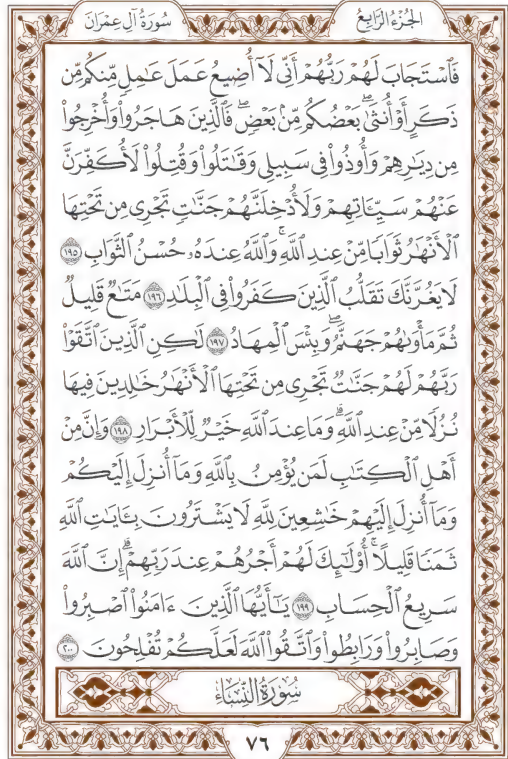 الجُزْءُ الرَّابِعُ
سُورَةُ آلِ عِمْرَانَ
فَٱسْتَجَابَ لَهُمْ رَبُّهُمْ أَنِّي لَآ أُضِيعُ عَمَلَ عَٰمِلٖ مِّنكُم مِّن
ذَكَرٍ أَوْ أُنثَىٰۖ بَعْضُكُم مِّنۢ بَعْضٖۖ فَٱلَّذِينَ هَاجَرُواْ وَأُخْرِجُواْ
مِن دِيَٰرِهِمْ وَأُوذُواْ فِي سَبِيلِي وَقَٰتَلُواْ وَقُتِلُواْ لَأُكَفِّرَنَّ
عَنْهُمْ سَيِّـَٔاتِهِمْ وَلَأُدْخِلَنَّهُمْ جَنَّٰتٖ تَجْرِي مِن تَحْتِهَا
ٱلْأَنْهَٰرُ ثَوَابٗا مِّنْ عِندِ ٱللَّهِۚ وَٱللَّهُ عِندَهُۥ حُسْنُ ٱلثَّوَابِ ١٩٥
لَا يَغُرَّنَّكَ تَقَلُّبُ ٱلَّذِينَ كَفَرُواْ فِي ٱلْبِلَٰدِ ١٩٦ مَتَٰعٞ قَلِيلٞ
ثُمَّ مَأْوَىٰهُمْ جَهَنَّمُۖ وَبِئْسَ ٱلْمِهَادُ ١٩٧ لَٰكِنِ ٱلَّذِينَ ٱتَّقَوْاْ
رَبَّهُمْ لَهُمْ جَنَّٰتٞ تَجْرِي مِن تَحْتِهَا ٱلْأَنْهَٰرُ خَٰلِدِينَ فِيهَا
نُزُلٗا مِّنْ عِندِ ٱللَّهِۗ وَمَا عِندَ ٱللَّهِ خَيْرٞ لِّلْأَبْرَارِ ١٩٨ وَإِنَّ مِنْ
أَهْلِ ٱلْكِتَٰبِ لَمَن يُؤْمِنُ بِٱللَّهِ وَمَآ أُنزِلَ إِلَيْكُمْ
وَمَآ أُنزِلَ إِلَيْهِمْ خَٰشِعِينَ لِلَّهِ لَا يَشْتَرُونَ بِـَٔايَٰتِ ٱللَّهِ
ثَمَنٗا قَلِيلًاۚ أُوْلَٰٓئِكَ لَهُمْ أَجْرُهُمْ عِندَ رَبِّهِمْۗ إِنَّ ٱللَّهَ
سَرِيعُ ٱلْحِسَابِ ١٩٩ يَٰٓأَيُّهَا ٱلَّذِينَ ءَامَنُواْ ٱصْبِرُواْ
وَصَابِرُواْ وَرَابِطُواْ وَٱتَّقُواْ ٱللَّهَ لَعَلَّكُمْ تُفْلِحُونَ ٢٠٠
سُورَةُ النِّسَاءِ
٧٦